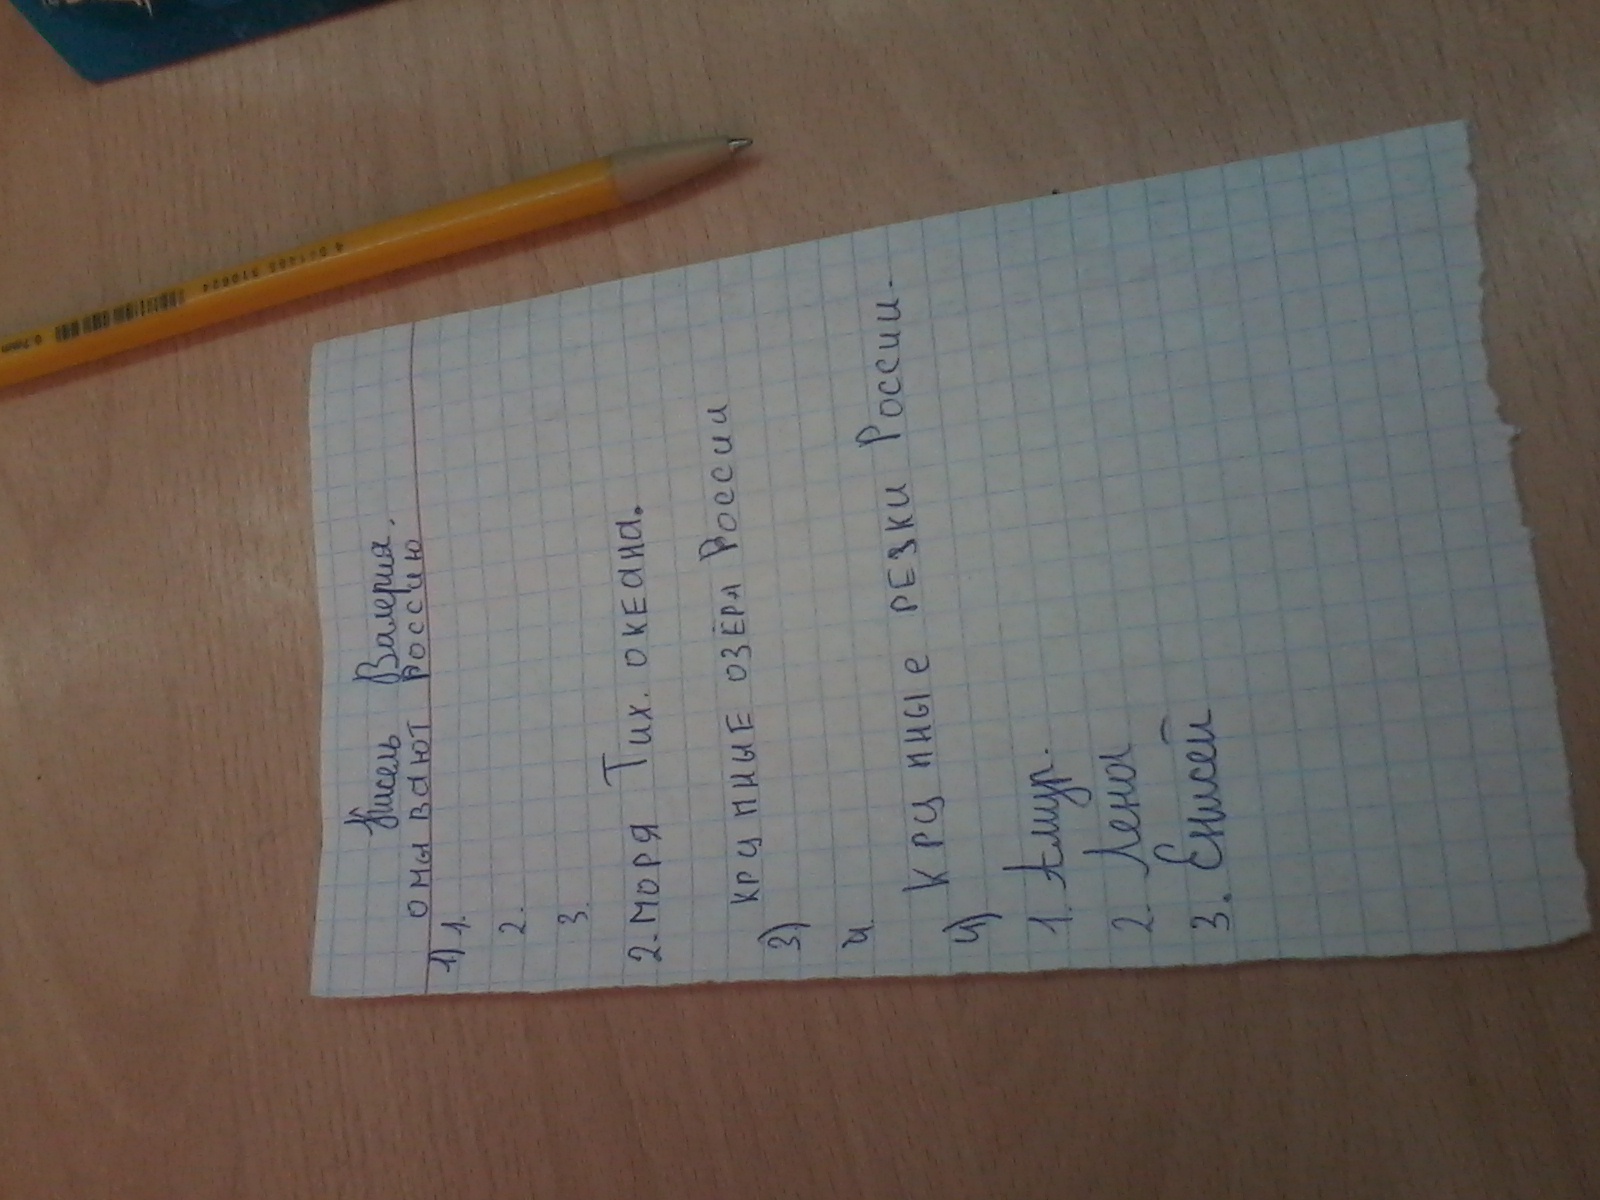 Кисель Валерия.
омывают россию
1) 1.
2.
3.
2. моря Тих. океана.
крупные озёра России
3)
4.
Крупные резки России.
4)
1. Амур.
2. Лена
3. Енисей
0.7mm